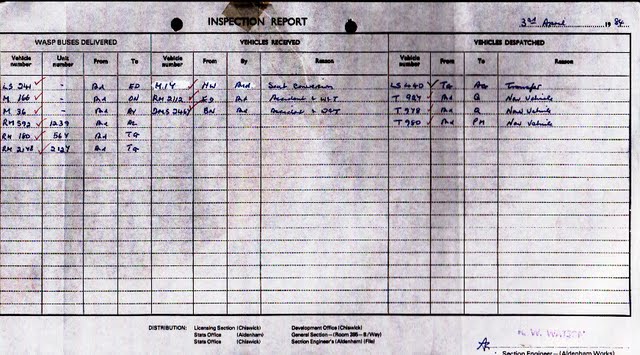 INSPECTION REPORT 3rd April 1984
WASP BUSES DELIVERED VEHICLES RECEIVED VEHICLES DISPATCHED
Vehicle number Unit number From To Vehicle number From By Reason Vehicle number From To Reason
LS 341 - Ad ED M 14 HW Ad Seat Conversion LS 440 TG AG Transfer
M 166 - Ad ON RM 2112 ED Ad Accident & WLT T 984 Ad Q New Vehicle
M 36 - Ad AV DMS 2464 BN Ad Accident & WLT T 978 Ad Q New Vehicle
RM 592 1239 Ad AL T 980 Ad PM New Vehicle
RM 180 564 Ad TG
RM 2148 2124 Ad TG
DISTRIBUTION: Licensing Section (Chiswick) Development Office (Chiswick)
State Office (Aldenham) General Section — (Room 295 — B/Way)
State Office (Chiswick) Section Engineer's (Aldenham) (File)
Section Engineer — (Aldenham Works)